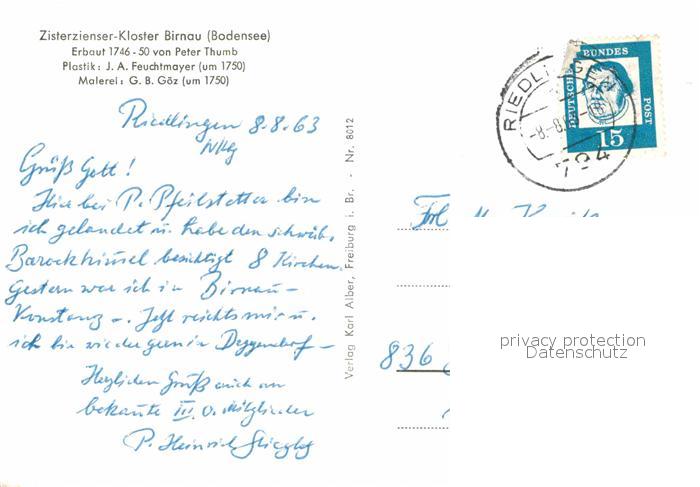 Zisterzienser-Kloster Birnau (Bodensee)
Erbaut 1746-50 von Peter Thumb
Plastik: J. A. Feuchtmayer (um 1750)
Malerei: G. B. Göz (um 1750)
Riedlingen 8.8.63
Grüß Gott!
Hier bei P. Pfeilstetter bin
ich gelandet u. habe den schwäb.
Barockhimmel besichtigt 8 Kirchen.
Gestern war ich in Birnau-
Konstanz -. Jetzt reichts mir u.
ich bin wieder gern in Deggendorf -
Herzlichen Gruß auch an
bekannte III. O. Mitglieder
P. Heinrich
Verlag Karl Alber, Freiburg i. Br. - Nr. 8012
DEUTSCHE BUNDES POST
15
RIEDLINGEN
-8.-8.
836
privacy protection
Datenschutz